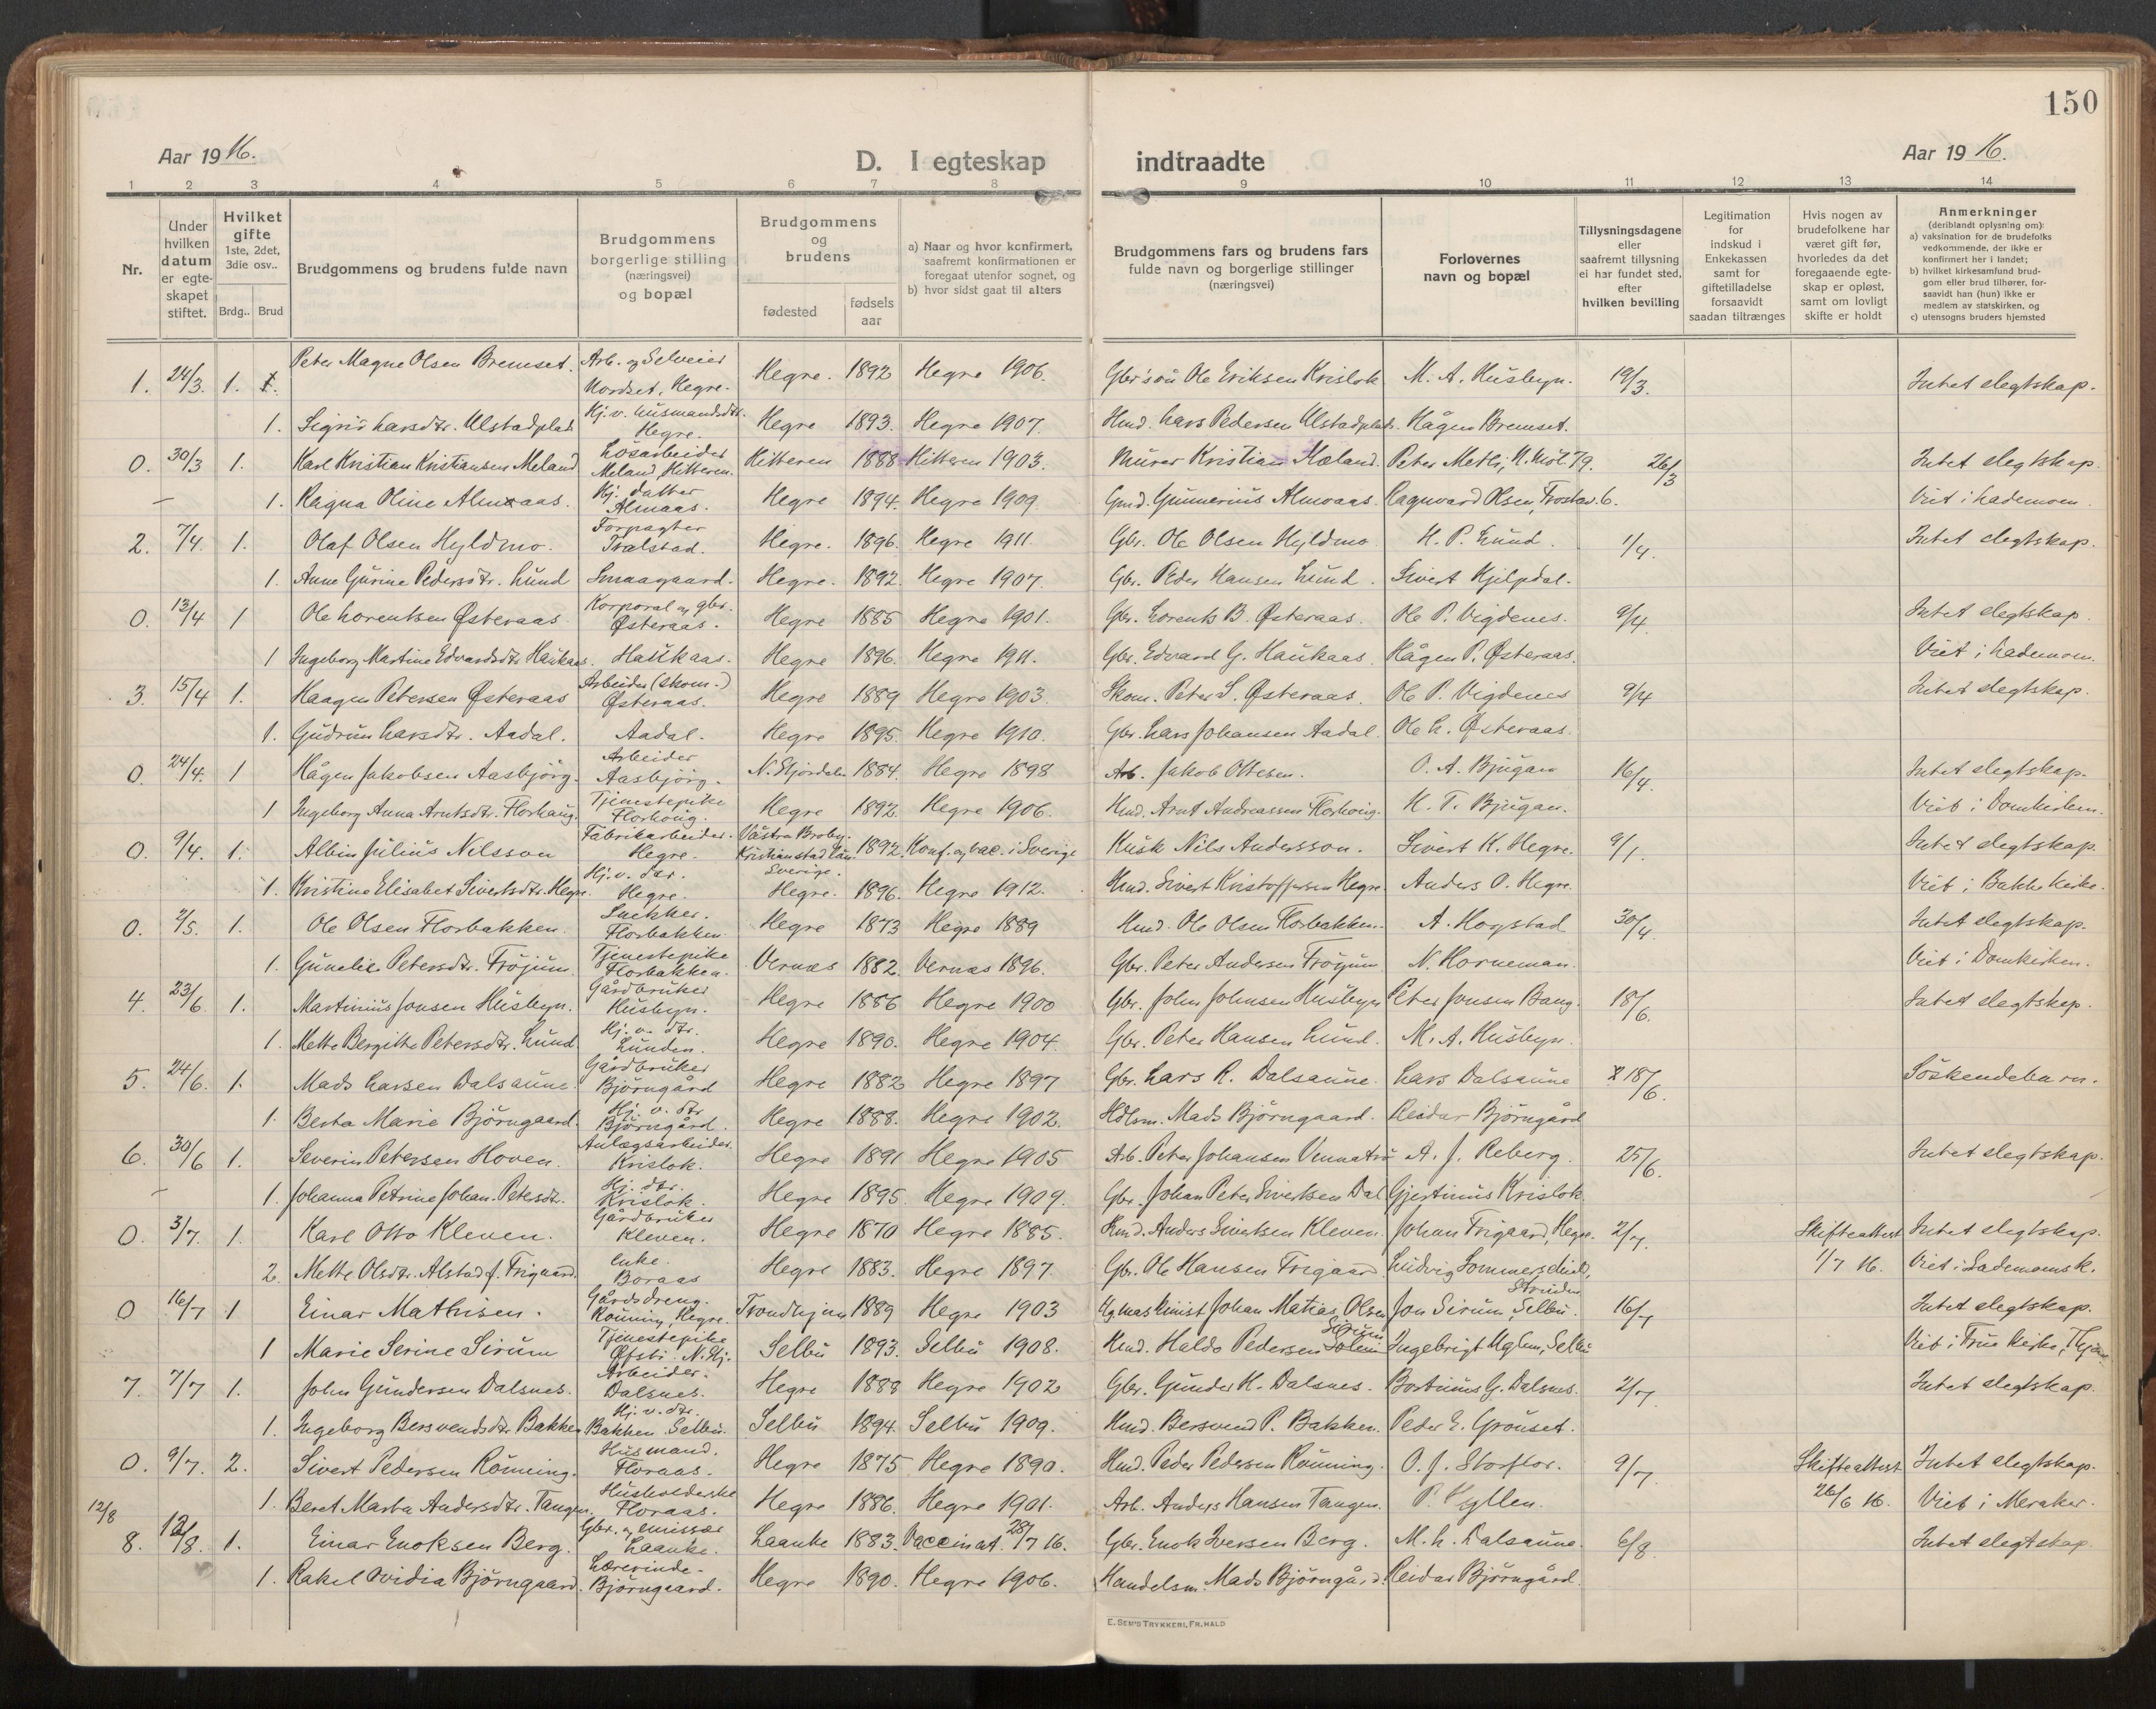 150
Aar 19 16.
D. I egteskap indtraadte
Aar 19 16.
1 2 3 4 5 6 7 8 9 10 11 12 13 14
Nr.
Under hvilken datum er egteskapet stiftet.
Hvilket gifte 1ste, 2det, 3die osv..
Brdg.. Brud
Brudgommens og brudens fulde navn
Brudgommens borgerlige stilling (næringsvei) og bopæl
Brudgommens og brudens
fødested
fødsels aar
a) Naar og hvor konfirmert, saafremt konfirmationen er foregaat utenfor sognet, og
b) hvor sidst gaat til alters
Brudgommens fars og brudens fars fulde navn og borgerlige stillinger (næringsvei)
Forlovernes navn og bopæl
Tillysningsdagene eller saafremt tillysning ei har fundet sted, efter hvilken bevilling
Legitimation for indskud i Enkekassen samt for giftetilladelse forsaavidt saadan tiltrænges
Hvis nogen av brudefolkene har været gift før, hvorledes da det foregaaende egteskap er opløst, samt om lovligt skifte er holdt
Anmerkninger (deriblandt oplysning om):
a) vaksination for de brudefolks vedkommende, der ikke er konfirmert her i landet;
b) hvilket kirkesamfund brudgom eller brud tilhører, forsaavidt han (hun) ikke er medlem av statskirken, og
c) utensogns bruders hjemsted
1. 24/3. 1. Peter Magne Olsen Bremset. Arb. og Selveier Nordset, Hegre. Hegre. 1892 Hegre 1906. Gbr'søn Ole Eriksen Krislok M. A. Husbyn. 19/3. Intet slegtskap.
1. Sigrid Larsdtr. Ulstadplads Hj. v. husmandsdtr. Hegre. Hegre 1893. Hegre 1907. Hmd. Lars Pedersen Ulstadplads. Hågen Bremset.
0. 30/3 1. Karl Kristian Kristiansen Meland Løsarbeider Meland, Hitteren. Hitteren 1888 Hitteren 1903. Murer Kristian Mæland. Peter Metli, N. Møl. 79. 26/3 Intet slegtskap.
– 1. Ragna Oline Almaas. Hj. datter Almaas. Hegre 1894. Hegre 1909. Gmd. Gunnerius Almoaas. Ragnvard Olsen, Frostav. 6. Viet i Lademoen.
2. 7/4. 1. Olaf Olsen Hyldmo. Forpagter Trælstad. Hegre. 1896. Hegre 1911. Gbr. Ole Olsen Hyldmo H. P. Lund. 1/4. Intet slegtskap.
1. Anne Gurine Pedersdtr. Lund Smaagaard. Hegre. 1892. Hegre 1907. Gbr. Peder Hansen Lund. Sivert Kjelpdal.
0. 13/4 1 Ole Lorentsen Østeraas. Korporal og gbr. Østeraas. Hegre 1885 Hegre 1901. Gbr. Lorents B. Østeraas. Ole P. Vigdenes. 9/4. Intet slegtskap.
1 Ingeborg Martine Edvardsdtr Haukaas. Haukaas. Hegre 1896. Hegre 1911. Gbr. Edvard G. Haukaas. Hågen P. Østeraas. Viet i Lademoen.
3. 15/4 1. Haagen Petersen Østeraas Arbeider (skom.) Østeraas. Hegre 1889 Hegre 1903. Skom. Peter S. Østeraas. Ole P. Vigdenes 9/4 Intet slegtskap.
1. Gudrun Larsdtr. Aadal. Aadal. Hegre 1895. Hegre 1910. Gbr. Lars Johansen Aadal. Ole L. Østeraas.
0. 24/4. 1 Hågen Jakobsen Aasbjörg. Arbeider Aasbjörg. N. Stjördalen 1884. Hegre 1898 Arb. Jakob Ottesen. O. A. Bjugan 16/4. Intet slegtskap.
1 Ingeborg Anna Arntsdtr. Florhaug. Tjenestepike Florhaug. Hegre 1892. Hegre 1906. Hmd. Arnt Andreassen Florhoug. H. T. Bjugan. Viet i Domkirken.
0. 9/4. 1. Albin Julius Nilsson Fabrikarbeider. Hegre. Västra Broby. Kristianstad län Sverige. 1892. Konf. og vac. i Sverige Kusk Nils Andersson. Sivert K. Hegre. 9/1. Intet slegtskap.
1. Kristine Elisabet Sivertsdtr. Hegre. Hj. v. dtr. Hegre. Hegre. 1896. Hegre 1912. Hmd. Sivert Kristoffersen Hegre. Anders O. Hegre. Viet i Bakke kirke.
0. 2/5. 1. Ole Olsen Florbakken. Snekker. Florbakken. Hegre 1873 Hegre 1889 Hmd. Ole Olsen Florbakken. A. Hogstad 30/4. Intet slegtskap.
1. Gunelie Petersdtr. Fröjum. Tjenestepike Florbakken. Vernæs 1882. Vernæs 1896. Gbr. Peter Andersen Fröjum N. Horneman. Viet i Domkirken.
4. 23/6 1. Martinius Jonsen Husbyn. Gårdbruker Husbyn. Hegre 1886 Hegre 1900 Gbr. John Johnsen Husbyn Peter Jonsen Bang. 18/6. Intet slegtskap.
1. Mette Bergitte Petersdtr. Lund. Hj. v. dtr. Lunden. Hegre 1890. Hegre 1904. Gbr. Peter Hansen Lund. M. A. Husbyn.
5. 24/6. 1. Mads Larsen Dalsaune. Gårdbruker Björngård Hegre 1882 Hegre 1897 Gbr. Lars R. Dalsaune. Lars Dalsaune 18/6. Söskendebarn.
1. Berta Marie Björngaard. Hj. v. dtr Björngård. Hegre 1888. Hegre 1902. Hdlsm. Mads Björngaard. Reidar Björngård
6. 30/6 1. Severin Petersen Hoven. Anlægsarbeider. Krislok. Hegre 1891 Hegre 1905 Arb. Peter Johansen Vennatrø A. J. Reberg. 25/6. Intet slegtskap.
– 1. Johanna Petrine Johan-Petersdtr. Hj. dtr. Krislok. Hegre 1895. Hegre 1909. Gbr. Johan Peter Sivertsen Dal Gjertinius Krislok
0. 3/7. 1. Karl Otto Kleven. Gårdbruker Kleven. Hegre 1870 Hegre 1885. Hmd. Anders Sivertsen Kleven. Johan Trigaard, Hegre. 2/7. Skifteattest Intet slegtskap.
2. Mette Olsdtr. Alstad f. Trigaard. enke. Boraas Hegre 1883. Hegre 1897. Gbr. Ole Hansen Trigaard. Ludvig Sommerschield, Strinden 1/7 16. Viet i Lademoens k.
0 16/7 1 Einar Mathisen. Gårdsdreng. Rönning, Hegre. Trondhjem 1889 Hegre 1903 Maskinist Johan Matias Olsen Jon Sirum, Selbu. 16/7 Intet slegtskap.
1 Marie Serine Sirum Tjenestepike Øfsti. N. Stj. Selbu 1893. Selbu 1908. Hmd. Haldo Pedersen Solem Sirum Ingebrigt Uglem, Selbu Viet i Frue kirke, Thjem.
7. 7/7 1. John Gundersen Dalsnes. Arbeider. Dalsnes. Hegre 1888 Hegre 1902 Gbr. Gunder H. Dalsnes. Bortinus G. Dalsnes. 2/7. Intet slegtskap.
1. Ingeborg Bersvendsdtr Bakken Hj. v. dtr. Bakken. Selbu. Selbu 1894. Selbu 1909. Hmd. Bersvend P. Bakken. Peder E. Grönset.
0. 9/7. 2. Sivert Pedersen Rönning. Husmand. Floraas. Hegre 1875 Hegre 1890. Hmd. Peder Pedersen Rönning. O. J. Storflor. 9/7. Skifteattest Intet slegtskap.
1. Beret Marta Andersdtr. Tangen. Husholderske Floraas. Hegre 1886. Hegre 1901. Arb. Anders Hansen Tangen. P. Hyllen. 26/6 16. Viet i Meraker.
12/8
8. 12/8. 1. Einar Enoksen Berg. Gbr. og emissær Laanke. Laanke 1883. Vaccinat. 28/7 16. Gbr. Enok Iversen Berg. M. L. Dalsaune. 6/8. Intet slegtskap
1. Rakel Ovidia Björngaard. Lærerinde. Björngaard. Hegre 1890. Hegre 1906. Handelsm. Mads Björngård. Reidar Björngård.
E. SEM'S TRYKKERI, FR.HALD